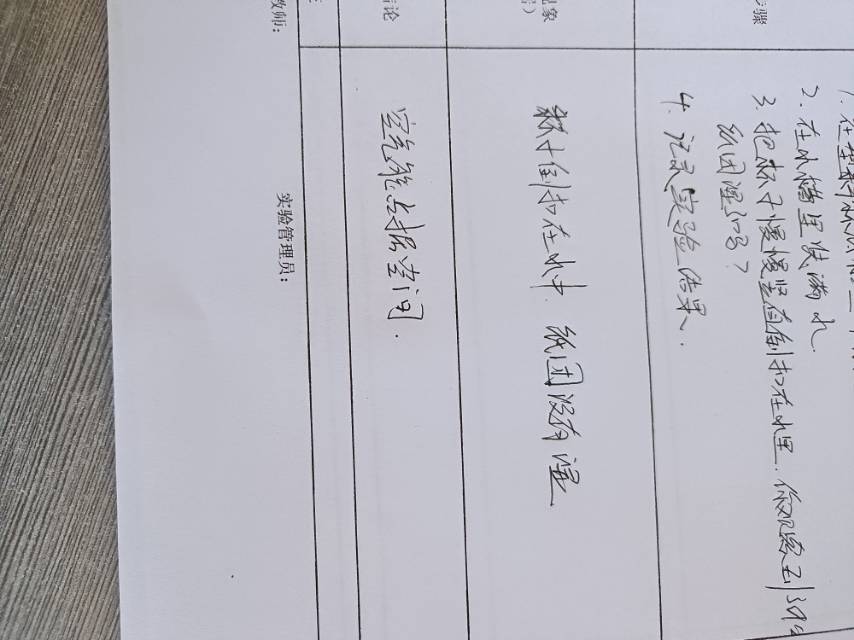 骤
1. 在塑料杯
2. 在水槽里装满水.
3. 把杯子慢慢竖直倒扣在水里. 你观察到
纸团湿吗?
4. 记录实验结果.
象
杯子倒扣在水中. 纸团没有湿
论
空气能占据空间.
教师:
实验管理员: